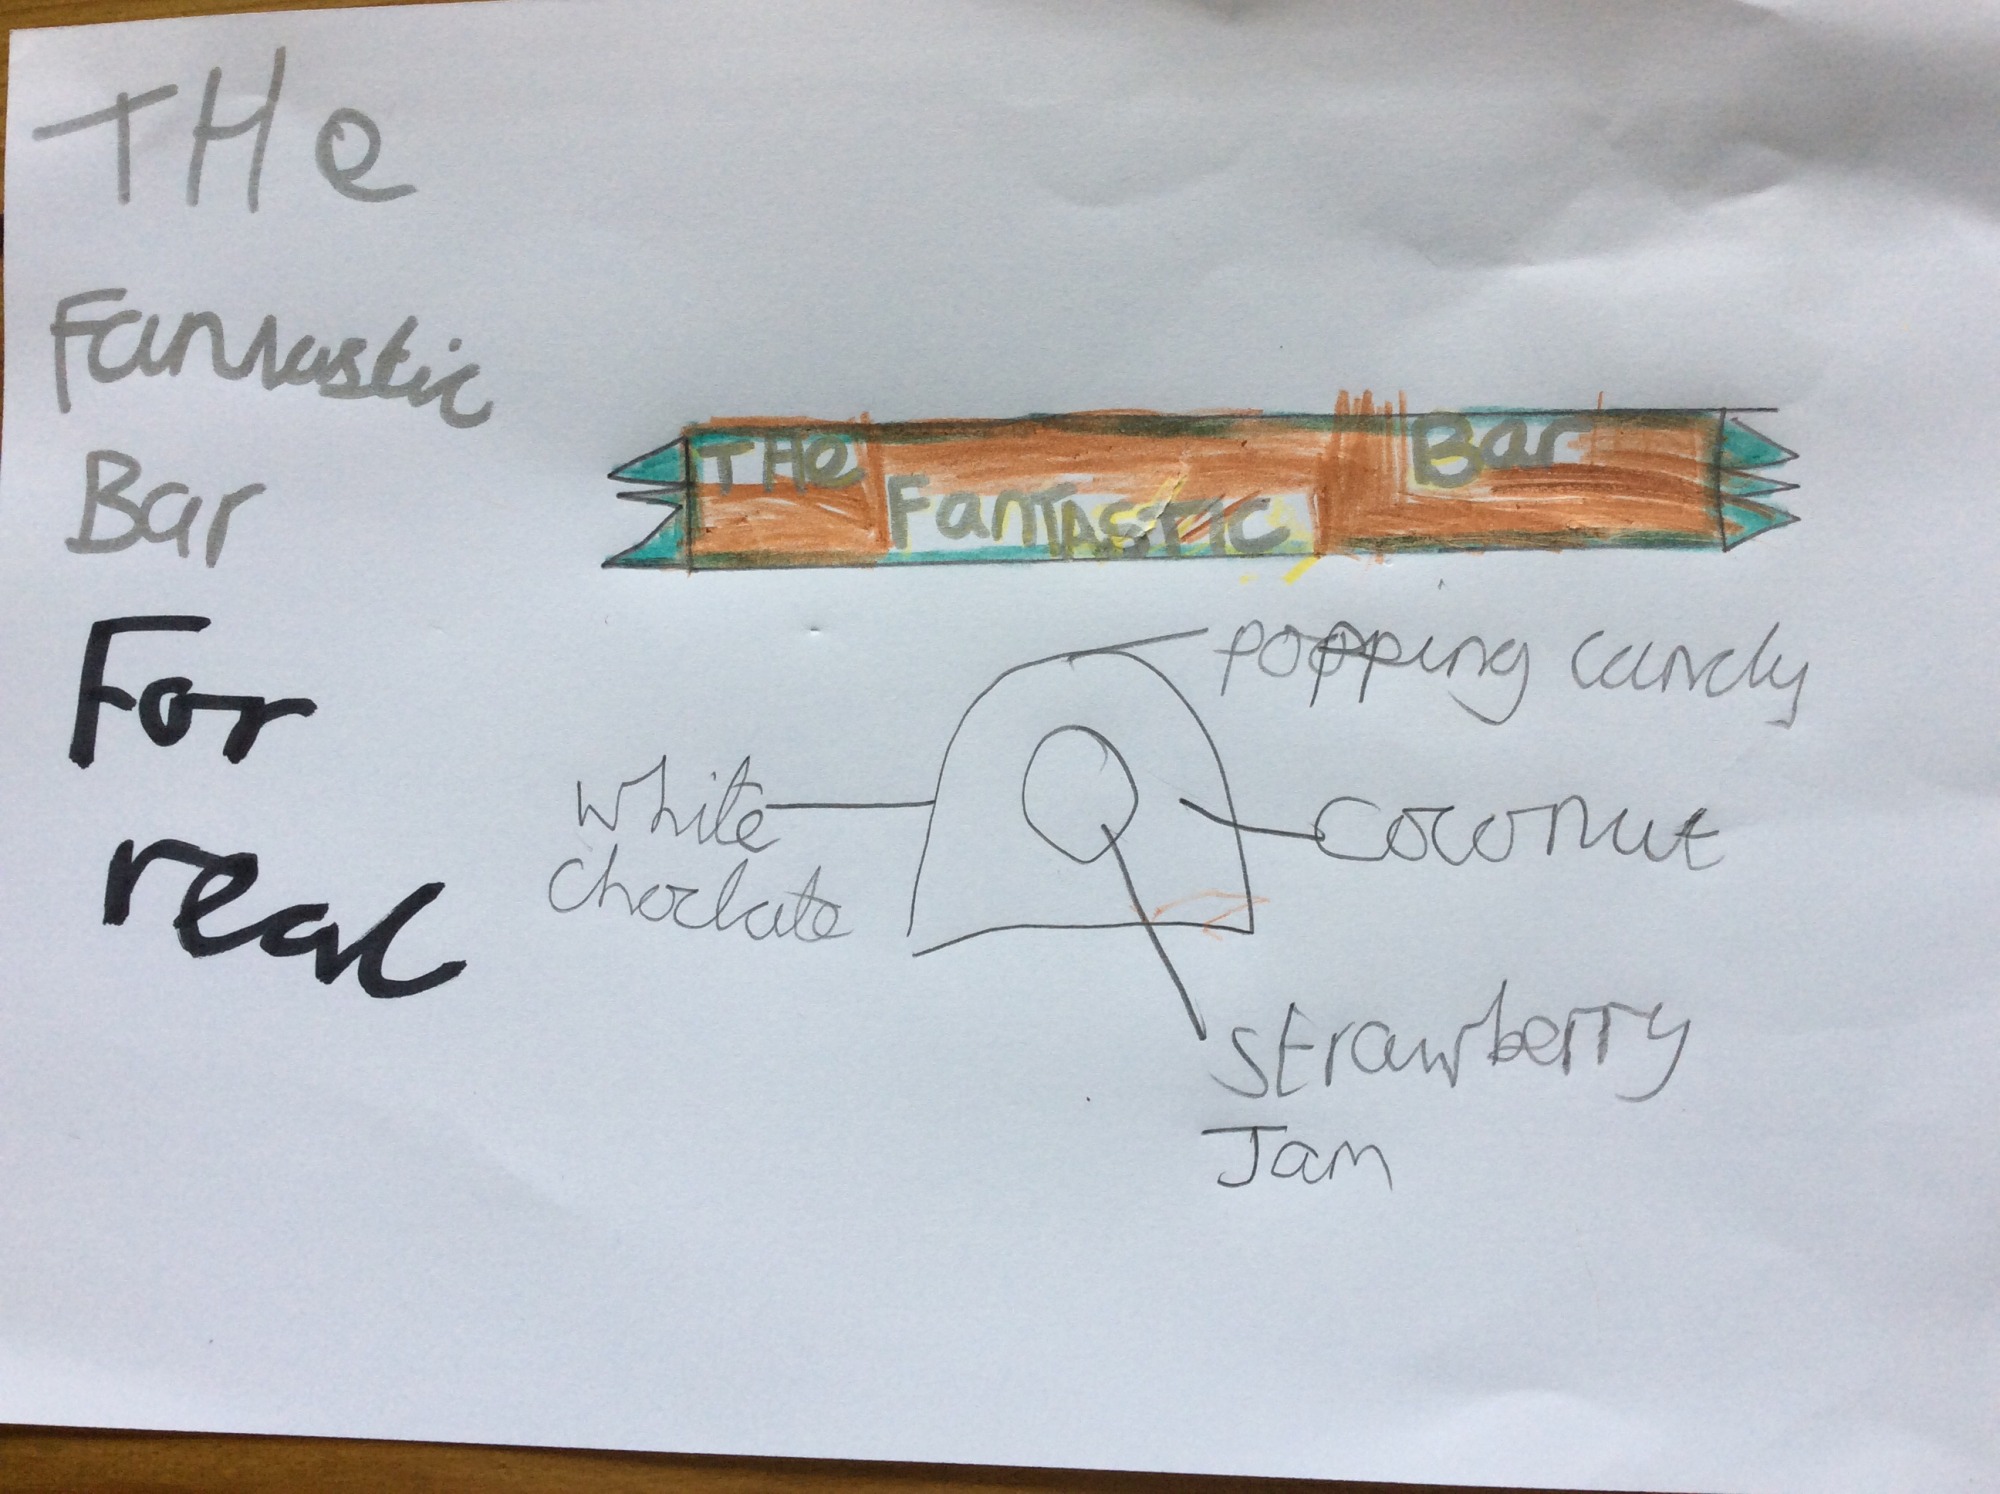 THe
Fantastic
Bar
For
real
THe
FanTASTIC
Bar
popping candy
white
choclate
coconut
strawberry
Jam